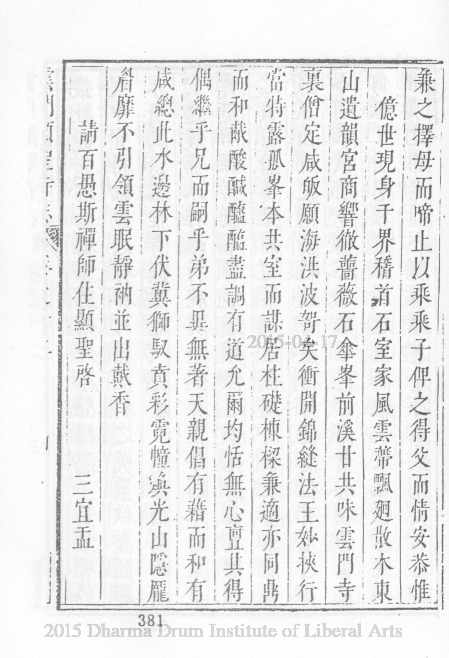 兼之擇母而啼止以乘乘子俾之得父而情安恭惟
億世現身千界稽首石室家風雲帶飄廻散木東
山遺韻宮商響徹薔薇石傘峯前溪廿共味雲門寺
裏僧定咸皈願海洪波哿矣衝開錦縫法王妙挾行
當特露孤峯本共室而謀居杜礎棟樑兼適亦同鼎
而和羹酸鹹醯醢盡調有道允爾均恬無心亶其得
偶繼乎兄而嗣乎弟不異無著天親倡有藉而和有
咸總此水邊林下伏冀獅馭賁彩霓幢與光山隱龐
眉靡不引領雲眠靜衲並出爇香
請百愚斯禪師住顯聖啓
三宜盂
2015-04-17
381
2015 Dharma Drum Institute of Liberal Arts